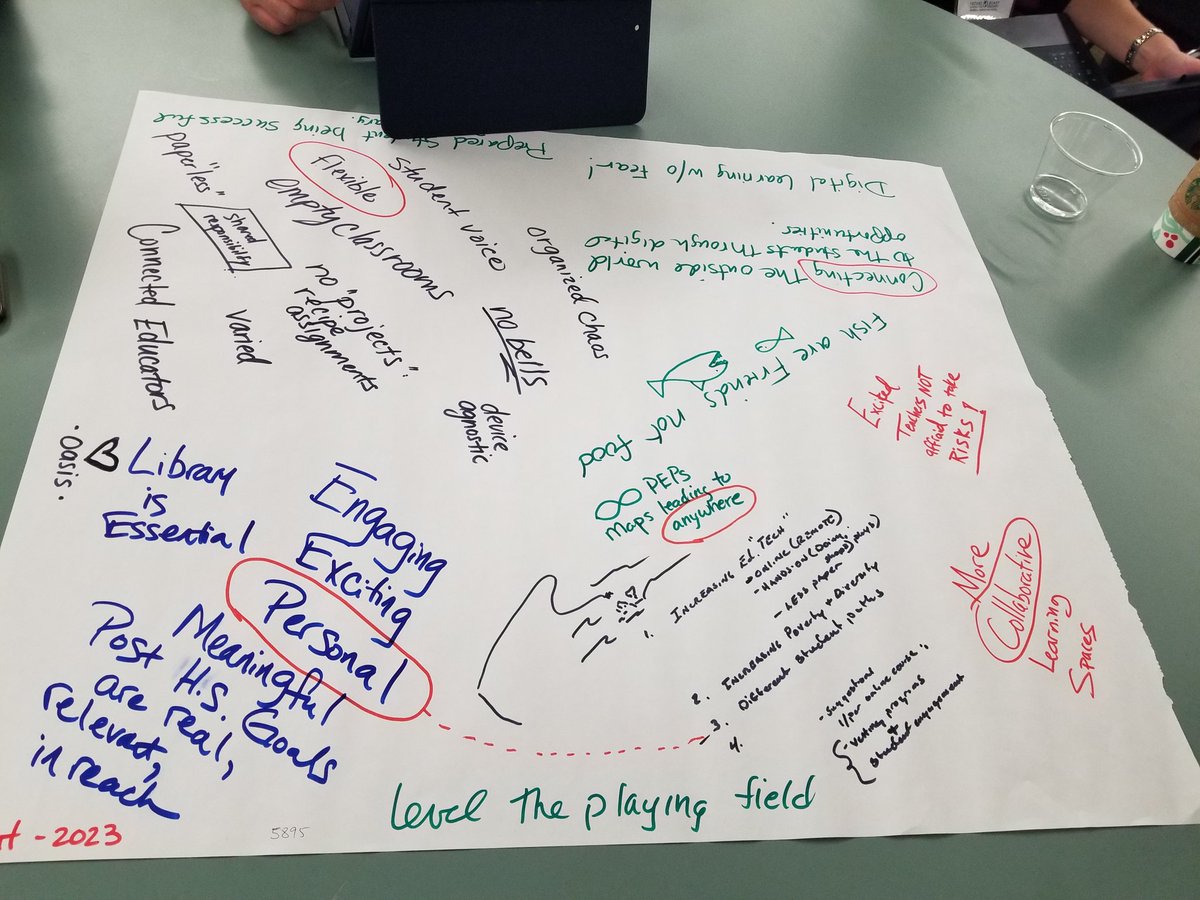 Prepared Student being Successful
Digital Learning w/o Fear!
Connecting The outside world
to the students through digital
opportunities.
paper"less"
flexible
student voice
empty classrooms
organized chaos
shared
responsibility
Connected Educators
varied
no "projects":
recipe
assignments
no bells
device
agnostic
Fish are Friends not food
Excited
Teachers NOT
affraid to take
Risks!
PEPs
maps leading to
anywhere
·Oasis·
Library
is
Essential
Engaging
Exciting
Personal
Meaningful
Post H.S. Goals
are real,
relevant,
in reach
1. INCREASING Ed. "TECH"
- ONLINE (REMOTE)
- HANDS-ON (Doing,
- LESS PAPER
2. INCREASING Poverty + Diversity
3. Different student paths
4.
- suggestions
1/per online course
- Vetting programs
+
student engagement
More
Collaborative
Learning
Spaces
level the playing field
- 2023
5895